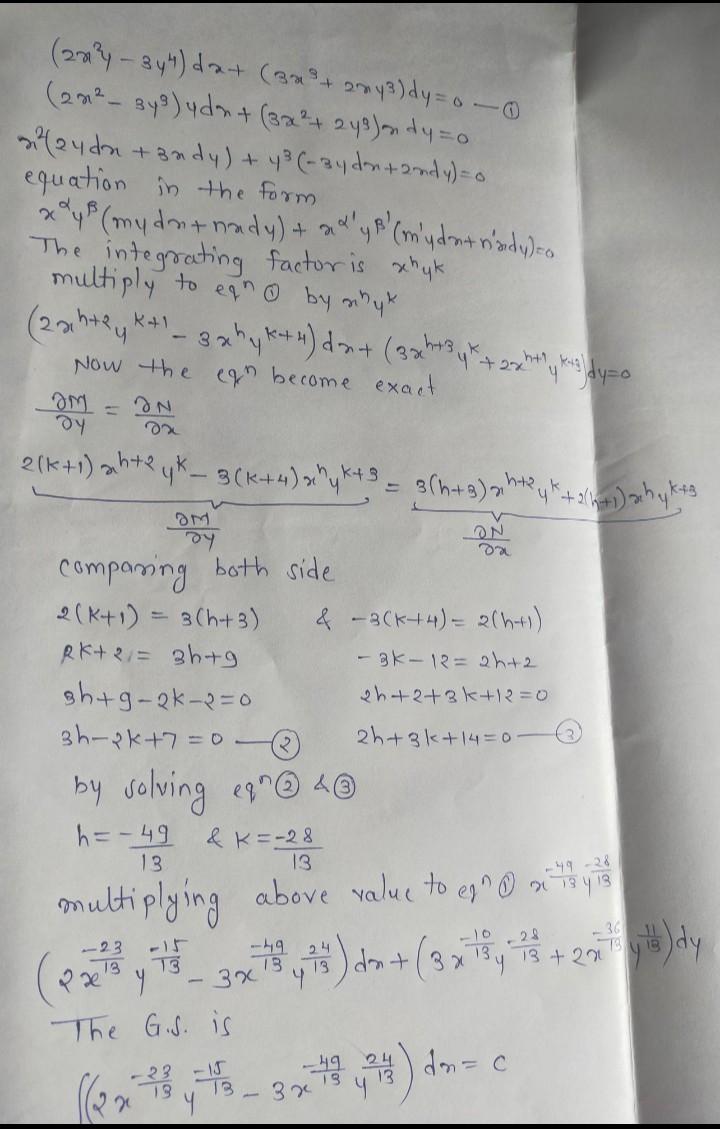 (2x²y - 3y⁴)dx + (3x³ + 2xy³)dy = 0 — ①
(2x² - 3y³)ydx + (3x² + 2y³)xdy = 0
x²(2ydx + 3xdy) + y³(-3ydx + 2xdy) = 0
equation in the form
x^α y^β (mydx + nxdy) + x^α' y^β' (m'ydx + n'xdy) = 0
The integrating factor is x^h y^k
multiply to eqⁿ ① by x^h y^k
(2x^(h+2) y^(k+1) - 3x^h y^(k+4))dx + (3x^(h+3) y^k + 2x^(h+1) y^(k+3))dy = 0
Now the eqⁿ become exact
∂M/∂y = ∂N/∂x
2(k+1)x^(h+2) y^k - 3(k+4)x^h y^(k+3) = 3(h+3)x^(h+2) y^k + 2(h+1)x^h y^(k+3)
∂M/∂y ∂N/∂x
comparing both side
2(k+1) = 3(h+3) & -3(k+4) = 2(h+1)
2k+2 = 3h+9 -3k-12 = 2h+2
3h+9-2k-2=0 2h+2+3k+12=0
3h-2k+7=0 — ② 2h+3k+14=0 — ③
by solving eqⁿ ② & ③
h = -49/13 & k = -28/13
multiplying above value to eqⁿ ① x^(-49/13) y^(-28/13)
(2x^(-23/13) y^(-15/13) - 3x^(-49/13) y^(24/13))dx + (3x^(-10/13) y^(-28/13) + 2x^(-36/13) y^(11/13))dy
The G.S. is
∫(2x^(-23/13) y^(-15/13) - 3x^(-49/13) y^(24/13))dx = c